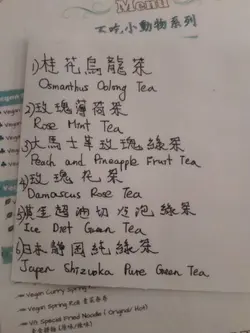 Menu
不吃小動物系列
1)桂花烏龍茶
Osmanthus Oolong Tea
2)玫瑰薄荷茶
Rose Mint Tea
3)大馬士革玫瑰綠茶
Peach and Pineapple Fruit Tea
4)玫瑰花茶
Damascus Rose Tea
超油切冷泡綠茶
Ice Diet Green Tea
6)日本靜岡純綠茶
Japen Shizuoka Pure Green Tea
Vegan Curry Spring
Vegan Spring Roll 素菜春卷
Vit Special Fried Noodle (Original/Hot)